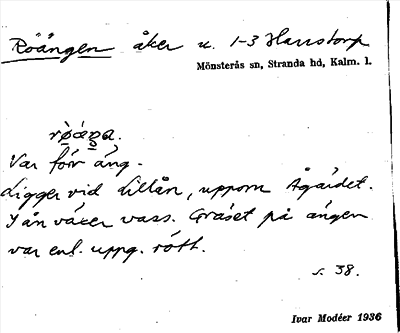 Röängen åker u. 1-3 Harstorp
Mönsterås sn, Stranda hd, Kalm. l.
Var förr äng.
Ligger vid Lillån, uppom Ågärdet.
I ån växer vass. Gräset på ängen
var enl. uppg. rött.
s. 38.
Ivar Modéer 1936